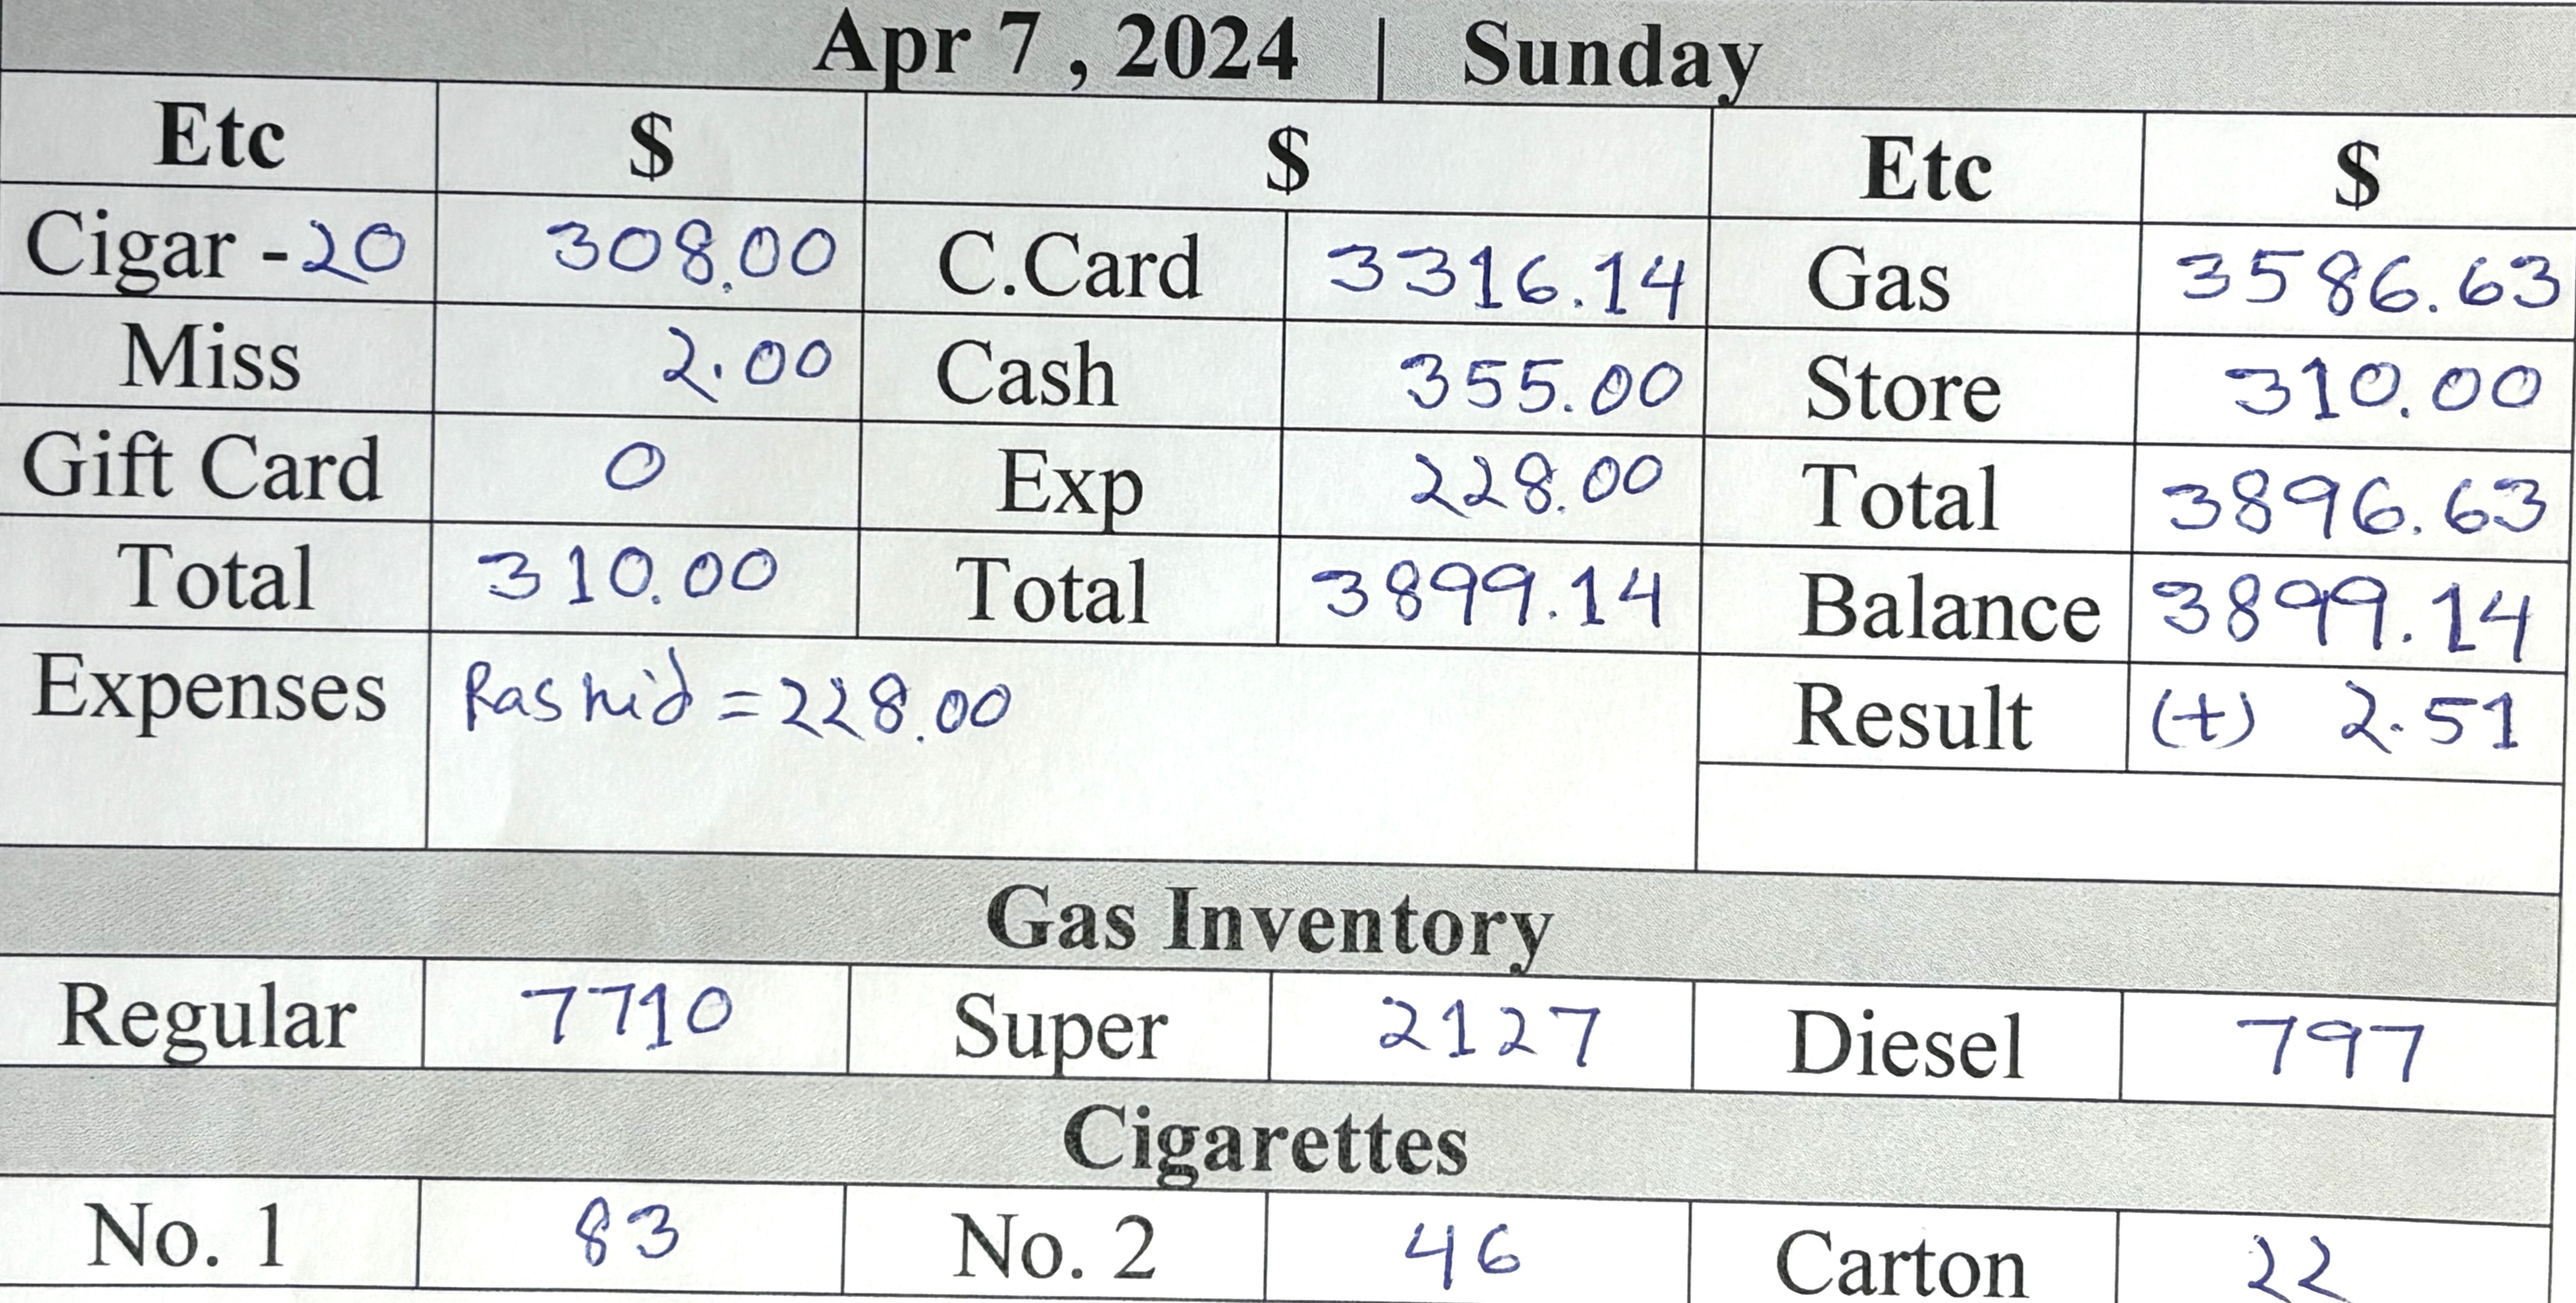 Apr 7 , 2024 | Sunday
Etc $ $ Etc $
Cigar - 20 308.00 C.Card 3316.14 Gas 3586.63
Miss 2.00 Cash 355.00 Store 310.00
Gift Card 0 Exp 228.00 Total 3896.63
Total 310.00 Total 3899.14 Balance 3899.14
Expenses Rashid = 228.00 Result (+) 2.51
Gas Inventory
Regular 7710 Super 2127 Diesel 797
Cigarettes
No. 1 83 No. 2 46 Carton 22